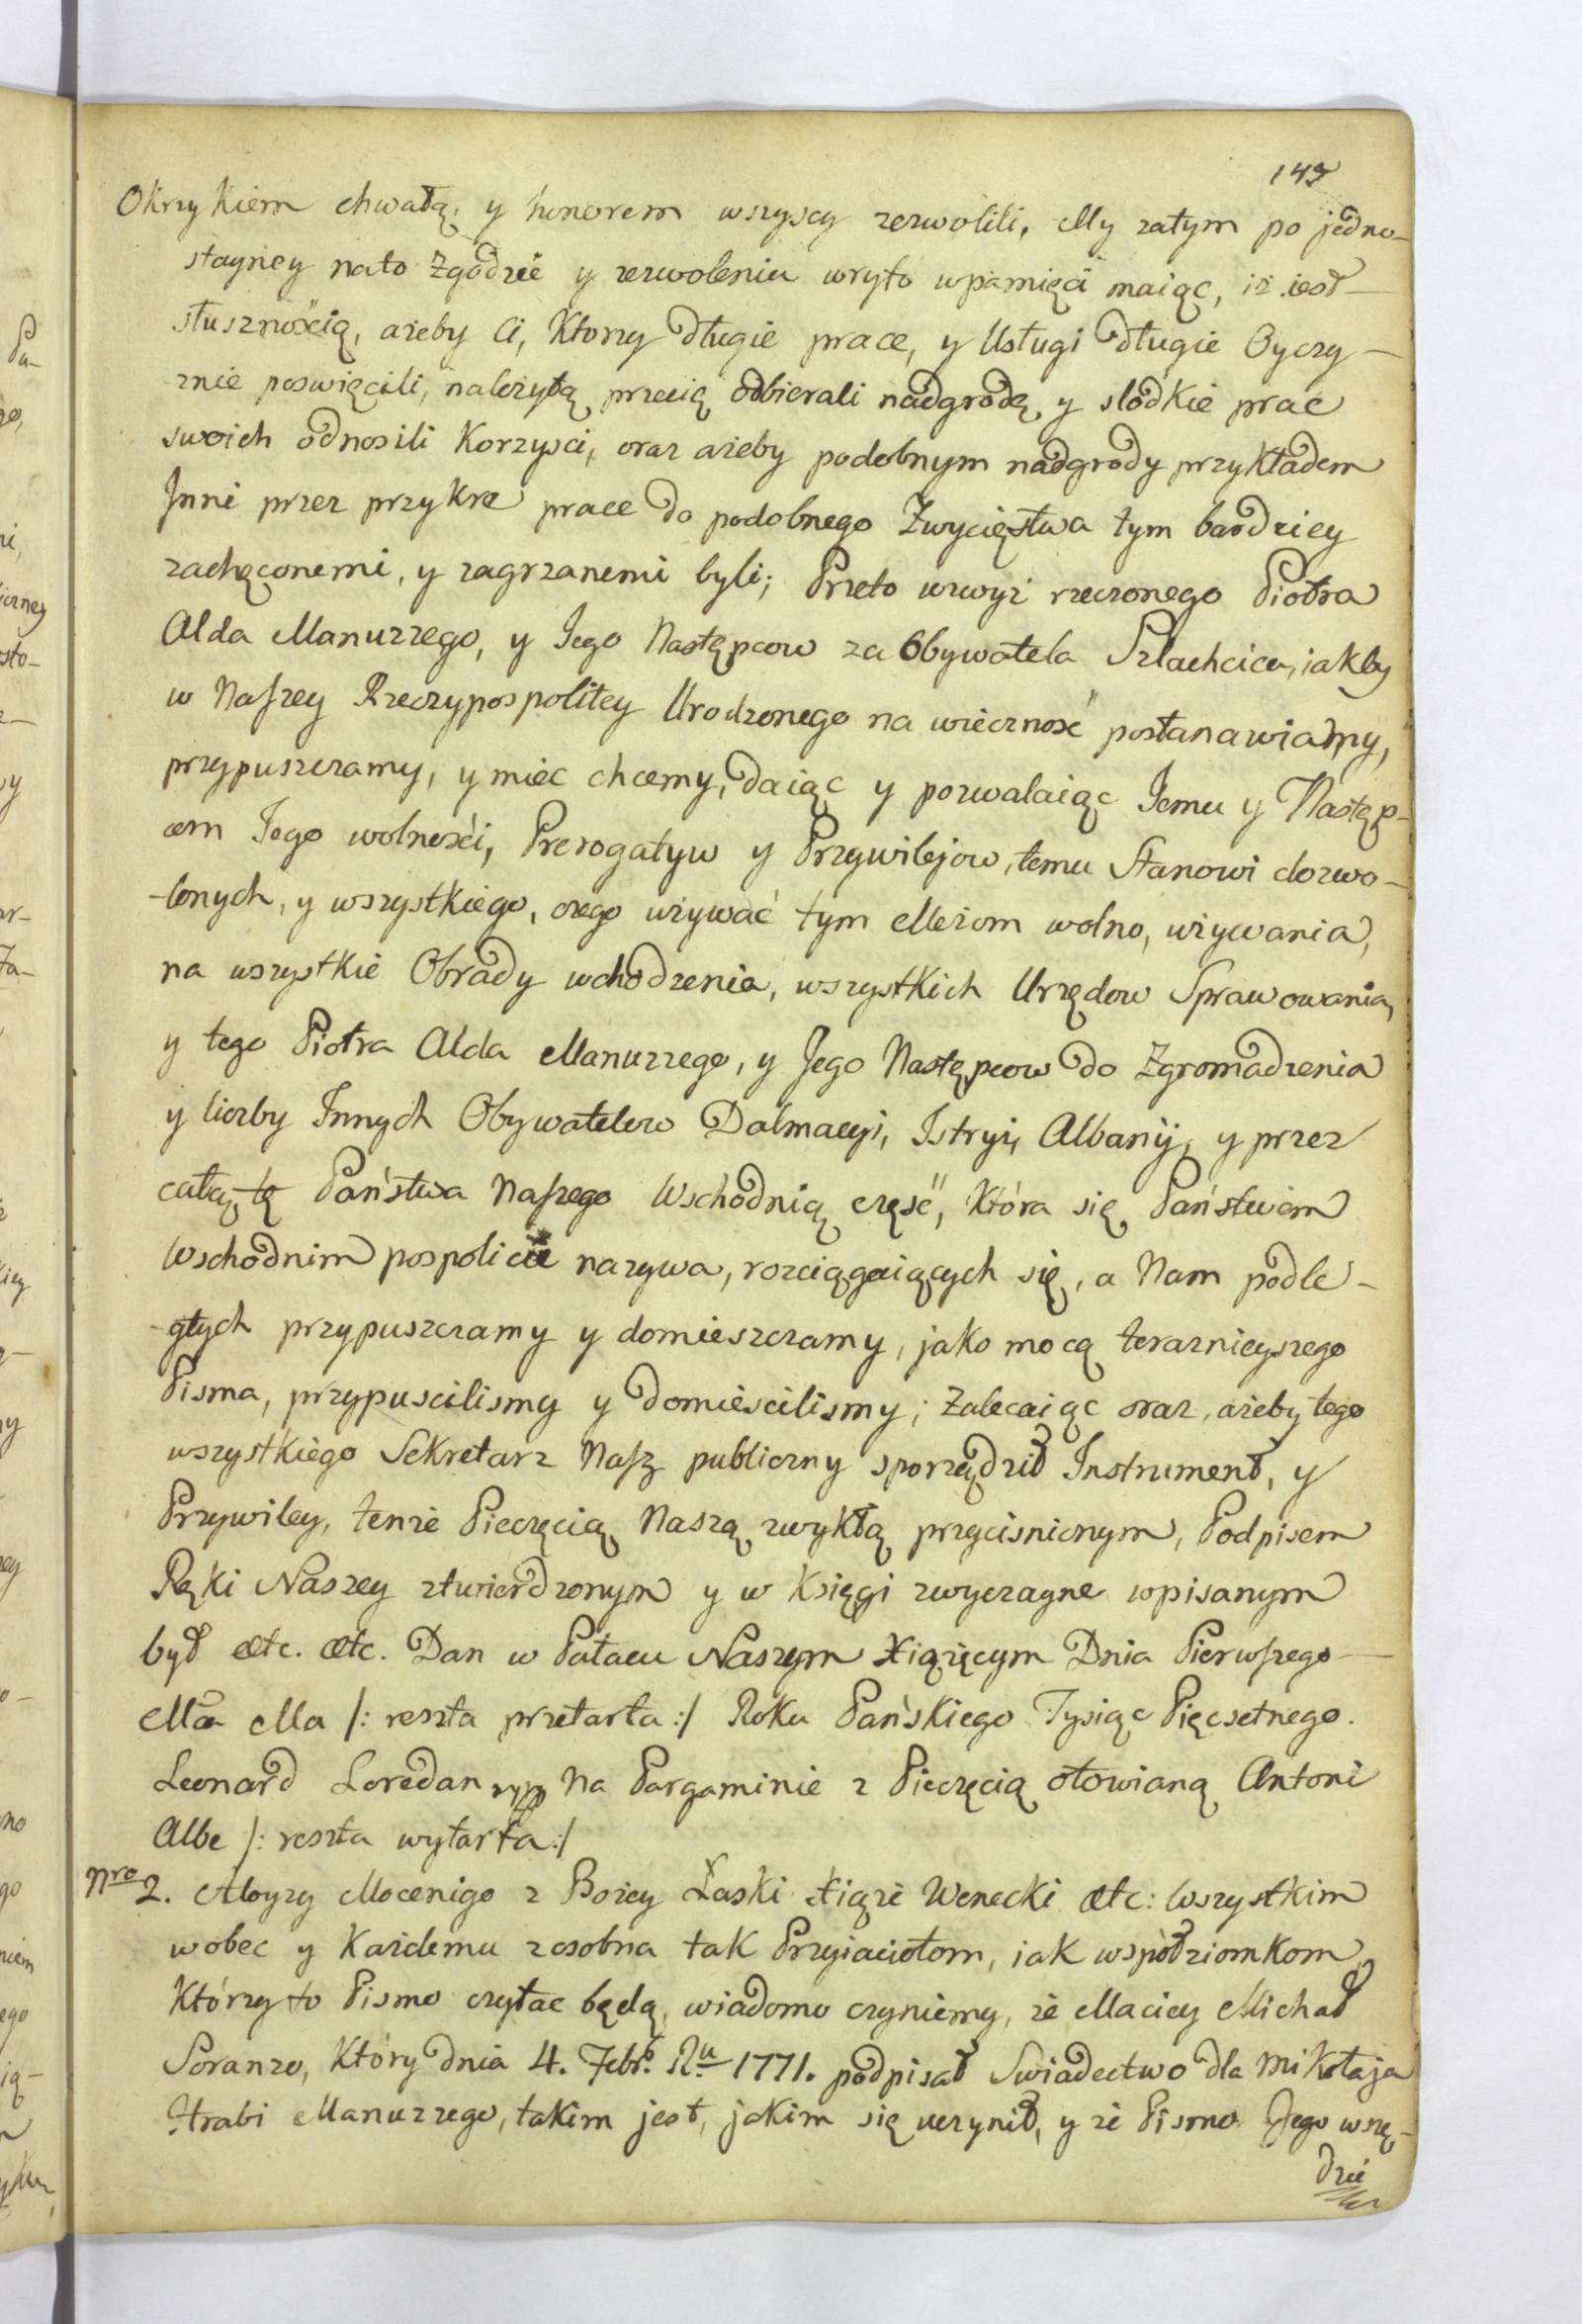 149
Okrzykiem chwałą y honorem wszyscy zezwolili, My zatym po jedno-
stayney nato Zgodzie y zezwoleniu wryto wpamięci maiąc, iż iest
słusznością, ażeby Ci, Ktorzy długie prace, y Usługi długie Oyczy-
znie poswięcili, należytą przecią odbierali nadgrodę y słodkie prac
swoich odnosili Korzysci, oraz ażeby podobnym nadgrody przykładem
Inni przez przykre prace do podobnego Zwycięstwa tym bardziey
zachęconemi, y zagrzanemi byli; Przeto wzwyż rzeczonego Piotra
Alda Manuzzego, y Jego Następcow za Obywatela Szlachcica, iakby
w Naszey Rzeczypospolitey Urodzonego na wieczność postanawiamy,
przypuszczamy, y miec chcemy, daiąc y pozwalaiąc Jemu y Następ-
com Jego wolności, Prerogatyw y Przywilejow, temu Stanowi dozwo-
-lonych, y wszystkiego, czego używać tym Mężom wolno, używania,
na wszystkie Obrady wchodzenia, wszystkich Urzędow Sprawowania,
y tego Piotra Alda Manuzzego, y Jego Następcow do Zgromadzenia
y liczby Innych Obywatelow Dalmacyi, Istryi, Albanij, y przez
całą tę Państwa Naszego Wschodnią część, Która się Państwem
Wschodnim pospolicie nazywa, rozciągaiących się, a Nam podle-
-głych przypuszczamy y domieszczamy, jako mocą teraznieyszego
Pisma, przypuscilismy y domiescilismy; Zalecaiąc oraz, ażeby tego
wszystkiego Sekretarz Nasz publiczny sporządził Instrument, y
Przywiley, tenże Pieczęcią Naszą zwykłą przycisnionym, Podpisem
Ręki Naszey ztwierdzonym y w Księgi zwyczayne wpisanym
był etc. etc. Dan w Pałacu Naszym Xiążęcym Dnia Pierwszego
Ma Ma /: reszta przetarta :/ Roku Pańskiego Tysiąc Pięcsetnego.
Leonard Loredan Na Pargaminie z Pieczęcią ołowianą Antoni
Albe /: reszta wytarta :/
Nro 2. Aloyzy Mocenigo z Bożey Łaski Xiąże Wenecki etc: Wszystkim
wobec y Każdemu zosobna tak Przyiaciołom, iak współziomkom,
Którzy to Pismo czytac będą, wiadomo czyniemy, że Maciey Michał
Soranzo, Który dnia 4. Febr. Ru 1771. podpisał Swiadectwo dla Mikołaja
Hrabi Manuzzego, takim jest, jakim się uczynił, y że Pismo Jego wszę-
dzie